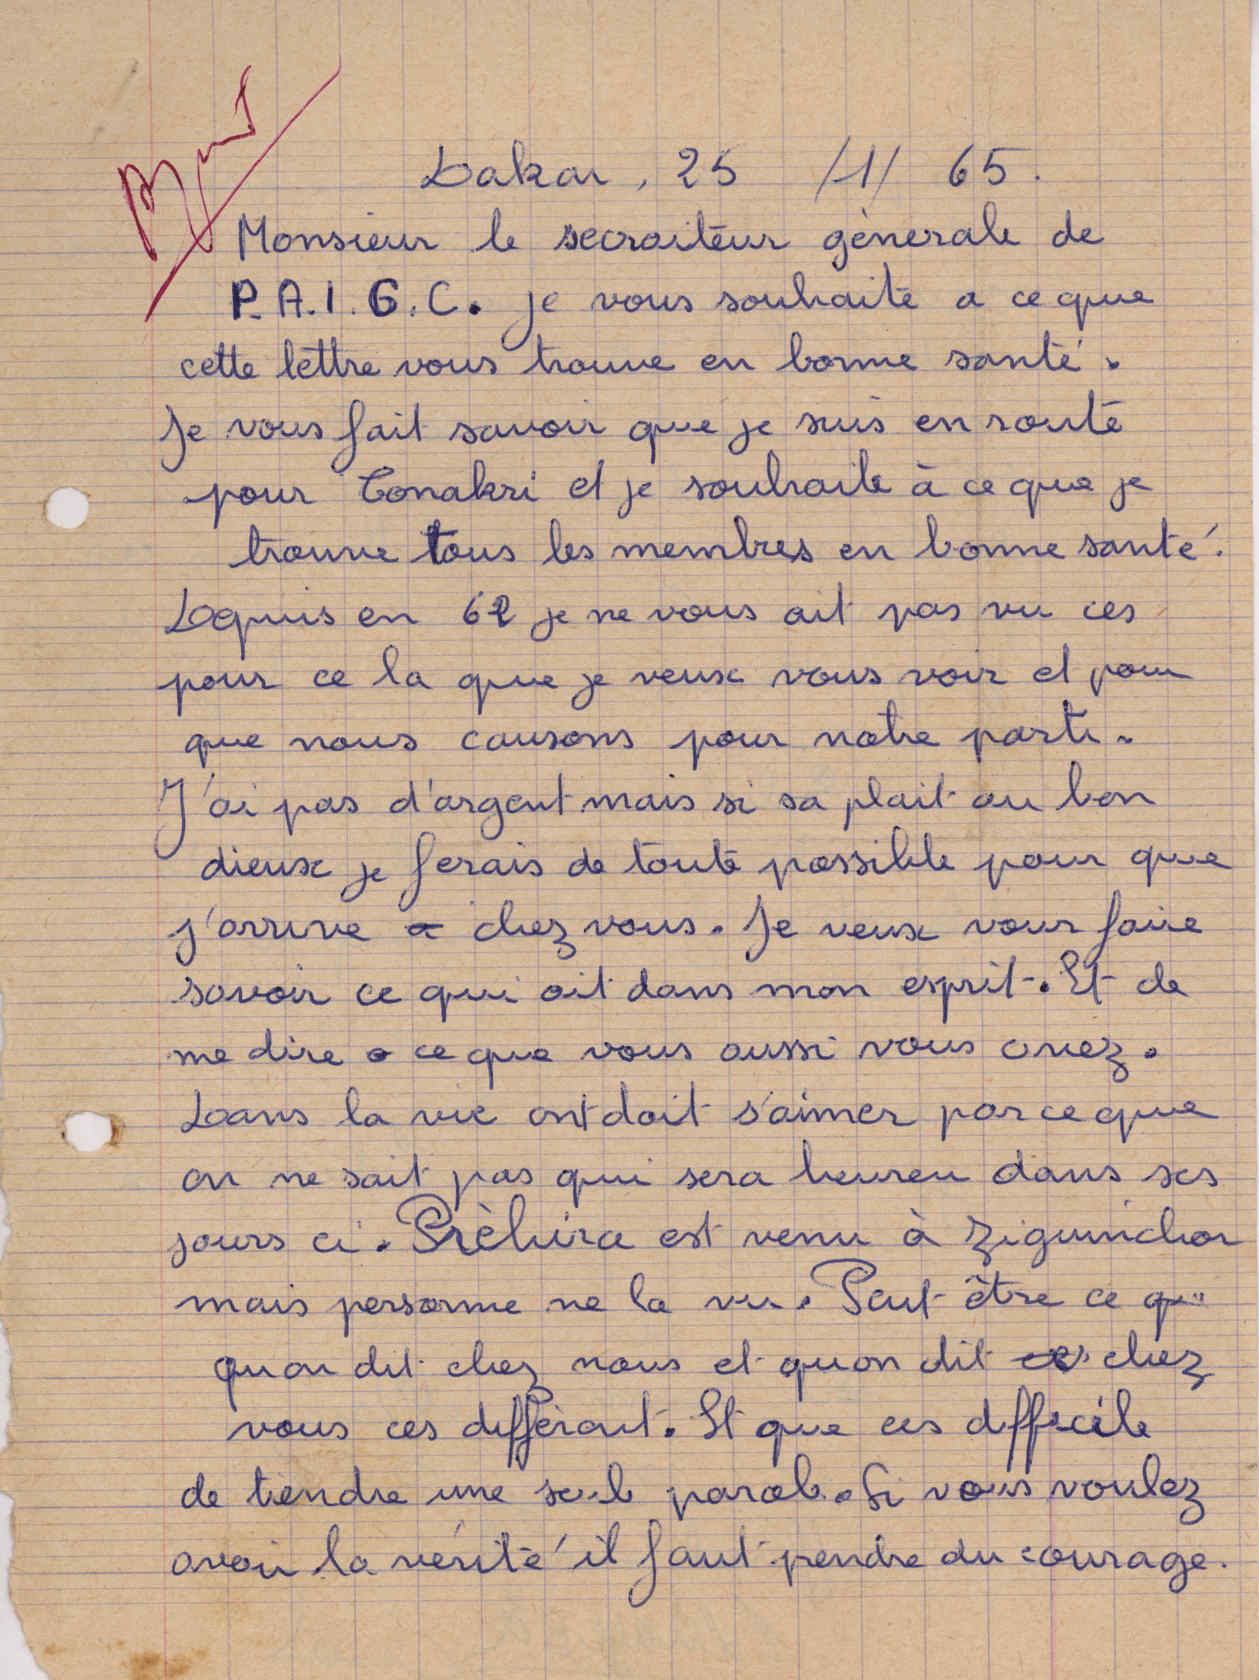 Dakar, 25 /1/ 65.
Monsieur le secraiteur gènerale de
P.A.I.G.C. je vous souhaite a ce que
cette lettre vous trouve en bonne santé.
Je vous fait savoir que je suis en route
pour Conakri et je souhaite à ce que je
trouve tous les membres en bonne santé.
Depuis en 62 je ne vous ait pas vu ces
pour ce la que je veux vous voir et pour
que nous causons pour notre parti.
J'ai pas d'argent mais si sa plait au bon
dieux je ferais de toute possible pour que
j'arrive a chez vous. Je veux vour faire
savoir ce qui ait dans mon esprit. Et de
me dire a ce que vous aussi vous avez.
Dans la vie ont doit s'aimer parce que
on ne sait pas qui sera heureu dans ses
jours ci. Prèhira est venu à Ziguinchor
mais personne ne la vu. Peut être ce qu
quon dit chez nous et quon dit chez
vous ces différant. Et que ces difficile
de tendre une seul parole. Si vous voulez
avoir la vérité il faut pendre du courage.